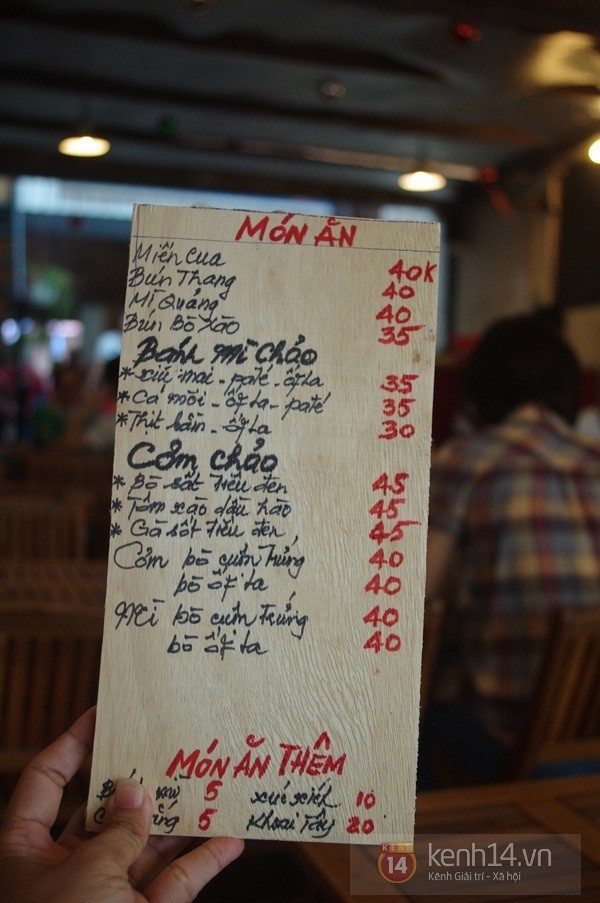 MÓN ĂN
Miến Cua 40K
Bún Thang 40
Mì Quảng 40
Bún Bò Xào 35
Bánh Mì Chảo
* Xíu mai - paté - ốt la 35
* Cá mòi - ốt la - paté 35
* Thịt bằn - ốt la 30
Cơm chảo
* Bò sốt tiêu đen 45
* Tôm xào dầu hào 45
* Gà sốt tiêu đen 45
Cơm bò cuộn trứng 40
bò ốt la 40
Mì bò cuộn trứng 40
bò ốt la 40
MÓN ĂN THÊM
mì 5 xúc xích 10
5 Khoai Tây 20
KÊNH 14 kenh14.vn
Kênh Giải trí - Xã hội